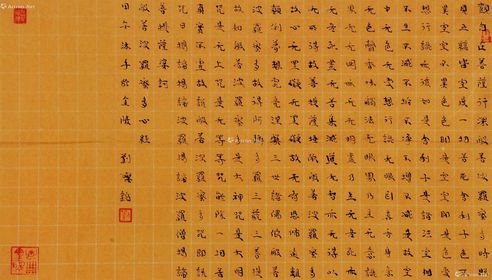 觀自在菩薩行深般若波羅蜜多時照
見五蘊皆空度一切苦厄舍利子色
不異空空不異色色即是空空即是色受
想行識亦復如是舍利子是諸法空相
不生不滅不垢不淨不增不減是故空中
无色无受想行識无眼耳鼻舌身意
无色聲香味觸法无眼界乃至无意識
界无无明亦无无明盡乃至无老死亦
无老死盡无苦集滅道无智亦无得以
无所得故菩提薩埵依般若波羅蜜多
故心无罣礙无罣礙故无有恐怖遠離
顛倒夢想究竟涅槃三世諸佛依般若
波羅蜜多故得阿耨多羅三藐三菩提
故知般若波羅蜜多是大神咒是大明
咒是无上咒是无等等咒能除一切苦
真實不虛故說般若波羅蜜多咒即說
咒曰揭諦揭諦波羅揭諦波羅僧揭諦
菩提薩婆訶
般若波羅蜜多心經
午沐手於金陵 劉